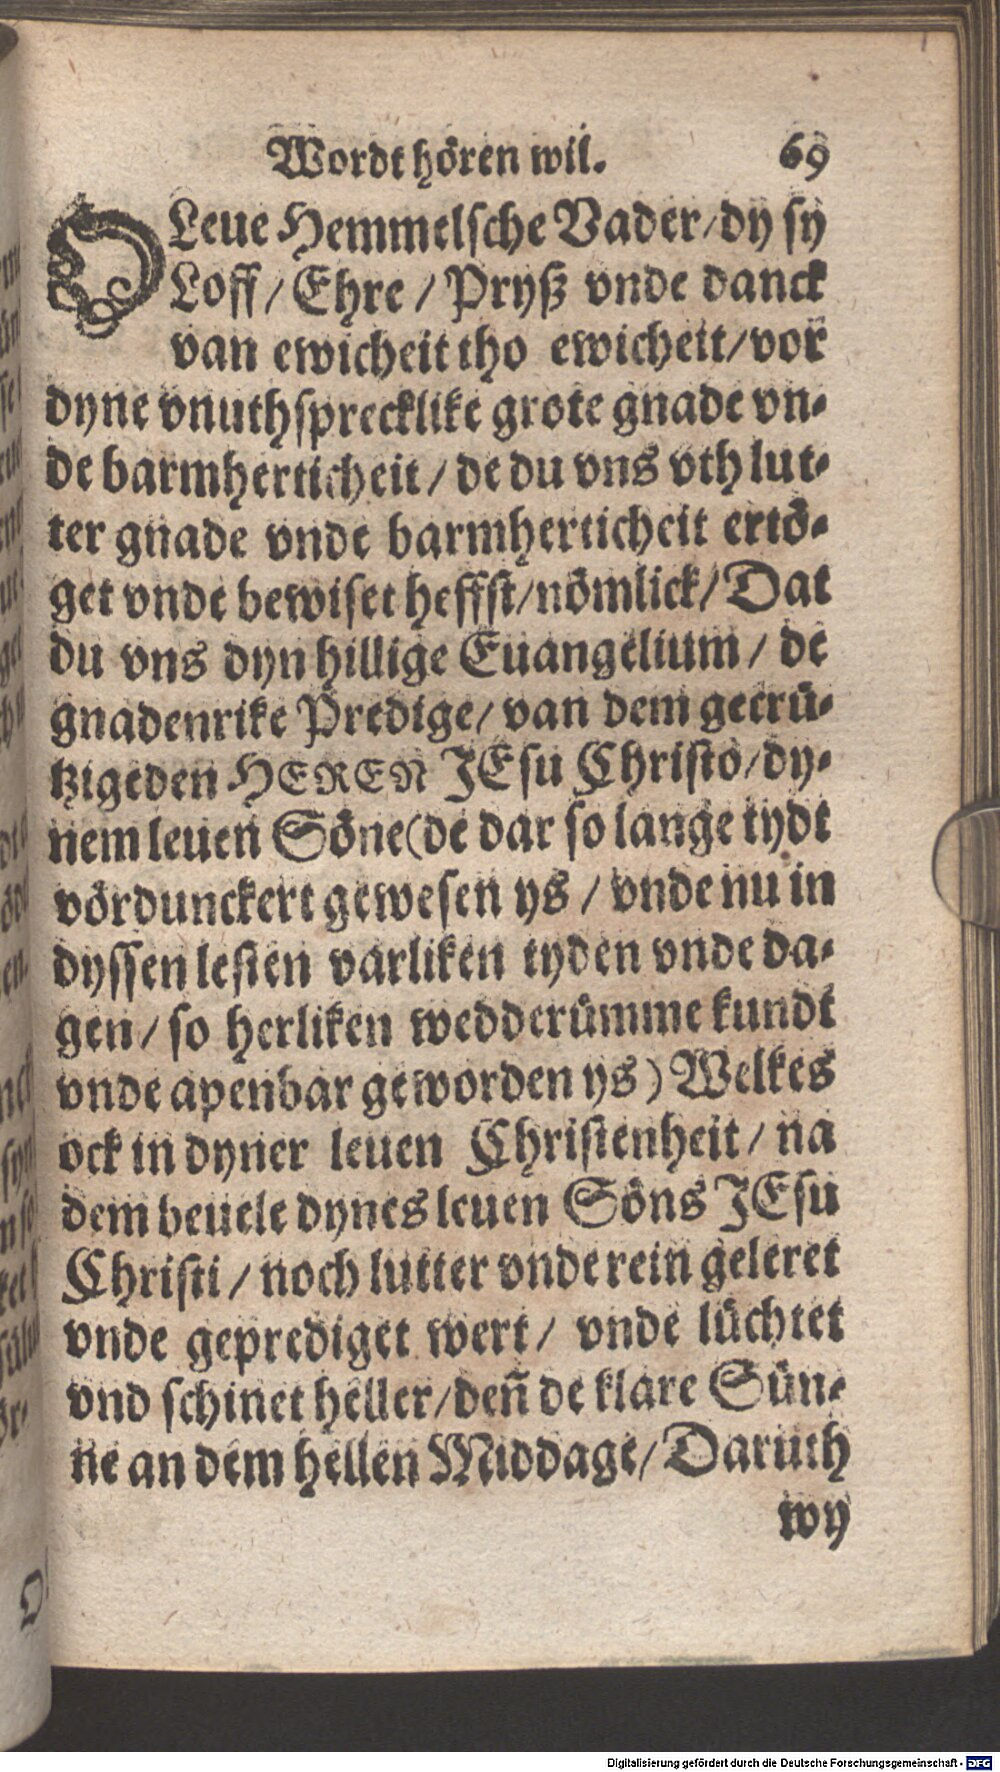 Wordt hören wil. 69
O Leue Hemmelsche Vader/dy sy
Loff/Ehre/Pryß vnde danck
van ewicheit tho ewicheit/vor
dyne vnuthsprecklike grote gnade vn-
de barmherticheit/de du vns vth lut-
ter gnade vnde barmherticheit ertö-
get vnde bewiset heffst/nömlick/Dat
du vns dyn hillige Euangelium/de
gnadenrike Predige/van dem gecrü-
tzigeden HEREN JEsu Christo/dy-
nem leuen Söne(de dar so lange tydt
vördunckert gewesen ys/vnde nu in
dyssen lesten varliken tyden vnde da-
gen/so herliken wedderümme kundt
vnde apenbar geworden ys) Welkes
ock in dyner leuen Christenheit/na
dem beuele dynes leuen Söns JEsu
Christi/noch lutter vnde rein geleret
vnde geprediget wert/vnde lüchtet
vnd schinet heller/den̄ de klare Sün-
ne an dem hellen Middage/Daruth
wy
Digitalisierung gefördert durch die Deutsche Forschungsgemeinschaft - DFG